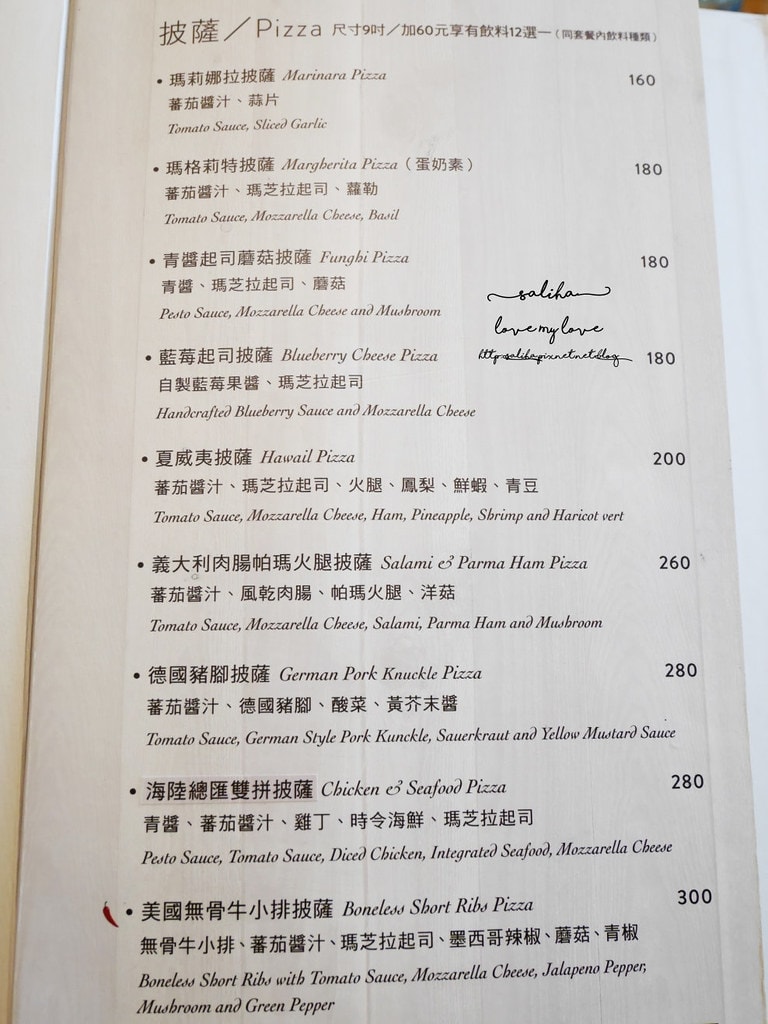 披薩／Pizza 尺寸9吋／加60元享有飲料12選一（同套餐內飲料種類）
• 瑪莉娜拉披薩 Marinara Pizza 160
蕃茄醬汁、蒜片
Tomato Sauce, Sliced Garlic
• 瑪格莉特披薩 Margherita Pizza（蛋奶素） 180
蕃茄醬汁、瑪芝拉起司、蘿勒
Tomato Sauce, Mozzarella Cheese, Basil
• 青醬起司蘑菇披薩 Funghi Pizza 180
青醬、瑪芝拉起司、蘑菇
Pesto Sauce, Mozzarella Cheese and Mushroom
saliha
love my love
http:saliha.pixnet.net/blog
• 藍莓起司披薩 Blueberry Cheese Pizza 180
自製藍莓果醬、瑪芝拉起司
Handcrafted Blueberry Sauce and Mozzarella Cheese
• 夏威夷披薩 Hawail Pizza 200
蕃茄醬汁、瑪芝拉起司、火腿、鳳梨、鮮蝦、青豆
Tomato Sauce, Mozzarella Cheese, Ham, Pineapple, Shrimp and Haricot vert
• 義大利肉腸帕瑪火腿披薩 Salami & Parma Ham Pizza 260
蕃茄醬汁、風乾肉腸、帕瑪火腿、洋菇
Tomato Sauce, Mozzarella Cheese, Salami, Parma Ham and Mushroom
• 德國豬腳披薩 German Pork Knuckle Pizza 280
蕃茄醬汁、德國豬腳、酸菜、黃芥末醬
Tomato Sauce, German Style Pork Kunckle, Sauerkraut and Yellow Mustard Sauce
• 海陸總匯雙拼披薩 Chicken & Seafood Pizza 280
青醬、蕃茄醬汁、雞丁、時令海鮮、瑪芝拉起司
Pesto Sauce, Tomato Sauce, Diced Chicken, Integrated Seafood, Mozzarella Cheese
• 美國無骨牛小排披薩 Boneless Short Ribs Pizza 300
無骨牛小排、蕃茄醬汁、瑪芝拉起司、墨西哥辣椒、蘑菇、青椒
Boneless Short Ribs with Tomato Sauce, Mozzarella Cheese, Jalapeno Pepper,
Mushroom and Green Pepper